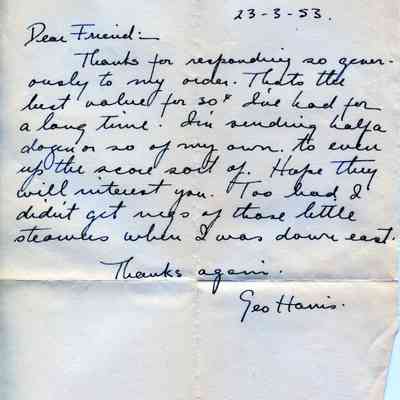 23-3-53.
Dear Friend:—
Thanks for responding so gener-
ously to my order. Thats the
best value for 50¢ I've had for
a long time. I'm sending half a
dozen or so of my own, to even
up the score sort of. Hope they
will interest you. Too bad I
didn't get negs of those little
steamers when I was down east.
Thanks again.
Geo Harris.